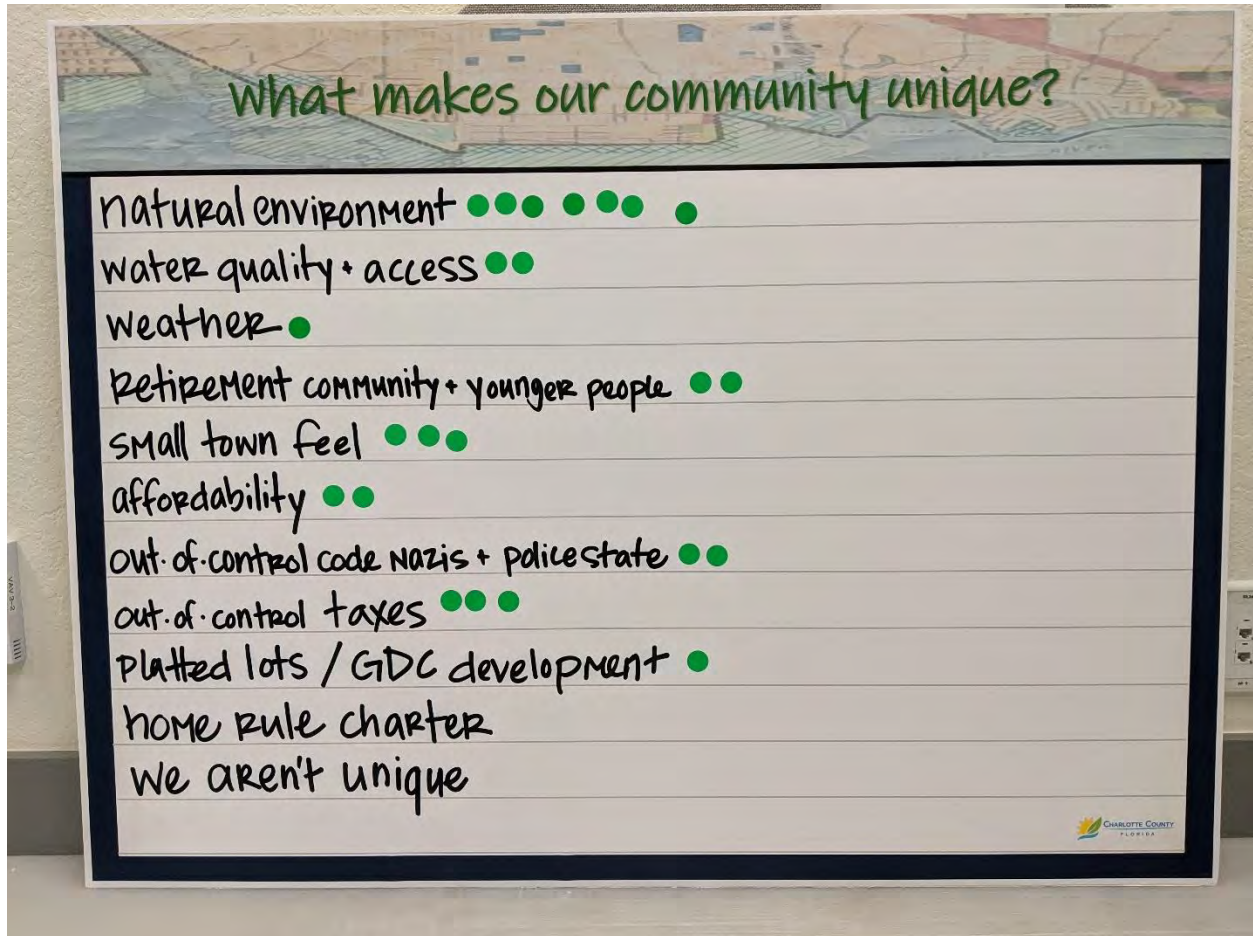 what makes our community unique?
natural environment
water quality + access
weather
retirement community + younger people
small town feel
affordability
out.of.control code Nazis + police state
out.of.control taxes
platted lots / GDC development
home rule charter
we aren't unique
CHARLOTTE COUNTY
FLORIDA